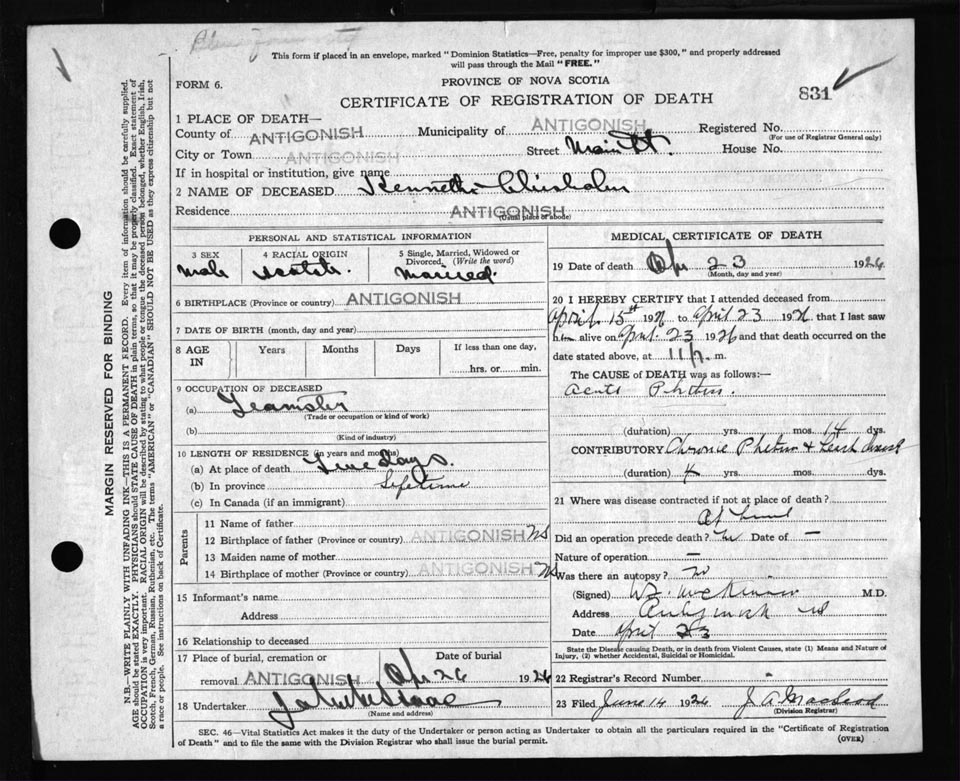 This form if placed in an envelope, marked "Dominion Statistics—Free, penalty for improper use $300," and properly addressed
will pass through the Mail "FREE."
FORM 6.
PROVINCE OF NOVA SCOTIA
CERTIFICATE OF REGISTRATION OF DEATH
831
1 PLACE OF DEATH—
County of ANTIGONISH Municipality of ANTIGONISH Registered No.
(For use of Registrar General only)
City or Town ANTIGONISH Street Main St. House No.
If in hospital or institution, give name
2 NAME OF DECEASED Kenneth Chisholm
Residence ANTIGONISH
(Usual place of abode)
PERSONAL AND STATISTICAL INFORMATION
3 SEX 4 RACIAL ORIGIN 5 Single, Married, Widowed or
Divorced, (Write the word)
Male Scotch Married.
6 BIRTHPLACE (Province or country) ANTIGONISH
7 DATE OF BIRTH (month, day and year)
8 AGE IN Years Months Days If less than one day,
hrs. or min.
9 OCCUPATION OF DECEASED
(a) Teamster
(Trade or occupation or kind of work)
(b)
(Kind of industry)
10 LENGTH OF RESIDENCE (in years and months)
(a) At place of death days.
(b) In province Lifetime
(c) In Canada (if an immigrant)
Parents
11 Name of father
12 Birthplace of father (Province or country) ANTIGONISH NS
13 Maiden name of mother
14 Birthplace of mother (Province or country) ANTIGONISH NS
15 Informant's name
Address
16 Relationship to deceased
17 Place of burial, cremation or Date of burial
removal ANTIGONISH Apr 26 1926
18 Undertaker
(Name and address)
MEDICAL CERTIFICATE OF DEATH
19 Date of death Apr 23 1926
(Month, day and year)
20 I HEREBY CERTIFY that I attended deceased from
April 15th 1926 to April 23 1926 that I last saw
him alive on April 23 1926 and that death occurred on the
date stated above, at 11 m.
The CAUSE of DEATH was as follows:—
Acute
(duration) yrs. mos. 14 dys.
CONTRIBUTORY Chronic
(duration) 4 yrs. mos. dys.
21 Where was disease contracted if not at place of death?
At
Did an operation precede death? no Date of —
Nature of operation —
Was there an autopsy? no
(Signed) M.D.
Address NS
Date April 23
State the Disease causing Death, or in death from Violent Causes, state (1) Means and Nature of
Injury, (2) whether Accidental, Suicidal or Homicidal.
22 Registrar's Record Number
23 Filed June 14 1926 J. A. MacLeod
(Division Registrar)
SEC. 46—Vital Statistics Act makes it the duty of the Undertaker or person acting as Undertaker to obtain all the particulars required in the "Certificate of Registration
of Death" and to file the same with the Division Registrar who shall issue the burial permit.
(OVER)
MARGIN RESERVED FOR BINDING
N.B.—WRITE PLAINLY WITH UNFADING INK—THIS IS A PERMANENT RECORD. Every item of information should be carefully supplied.
AGE should be stated EXACTLY. PHYSICIANS should STATE CAUSE OF DEATH in plain terms, so that it may be properly classified. Exact statement of
OCCUPATION is very important. RACIAL ORIGIN will be described by stating to what people or tongue the deceased person belonged, whether English, Irish,
Scotch, French, German, Russian, Ruthenian, etc. The terms "AMERICAN" or "CANADIAN" SHOULD NOT BE USED as they express citizenship but not
a race or people. See instructions on back of Certificate.